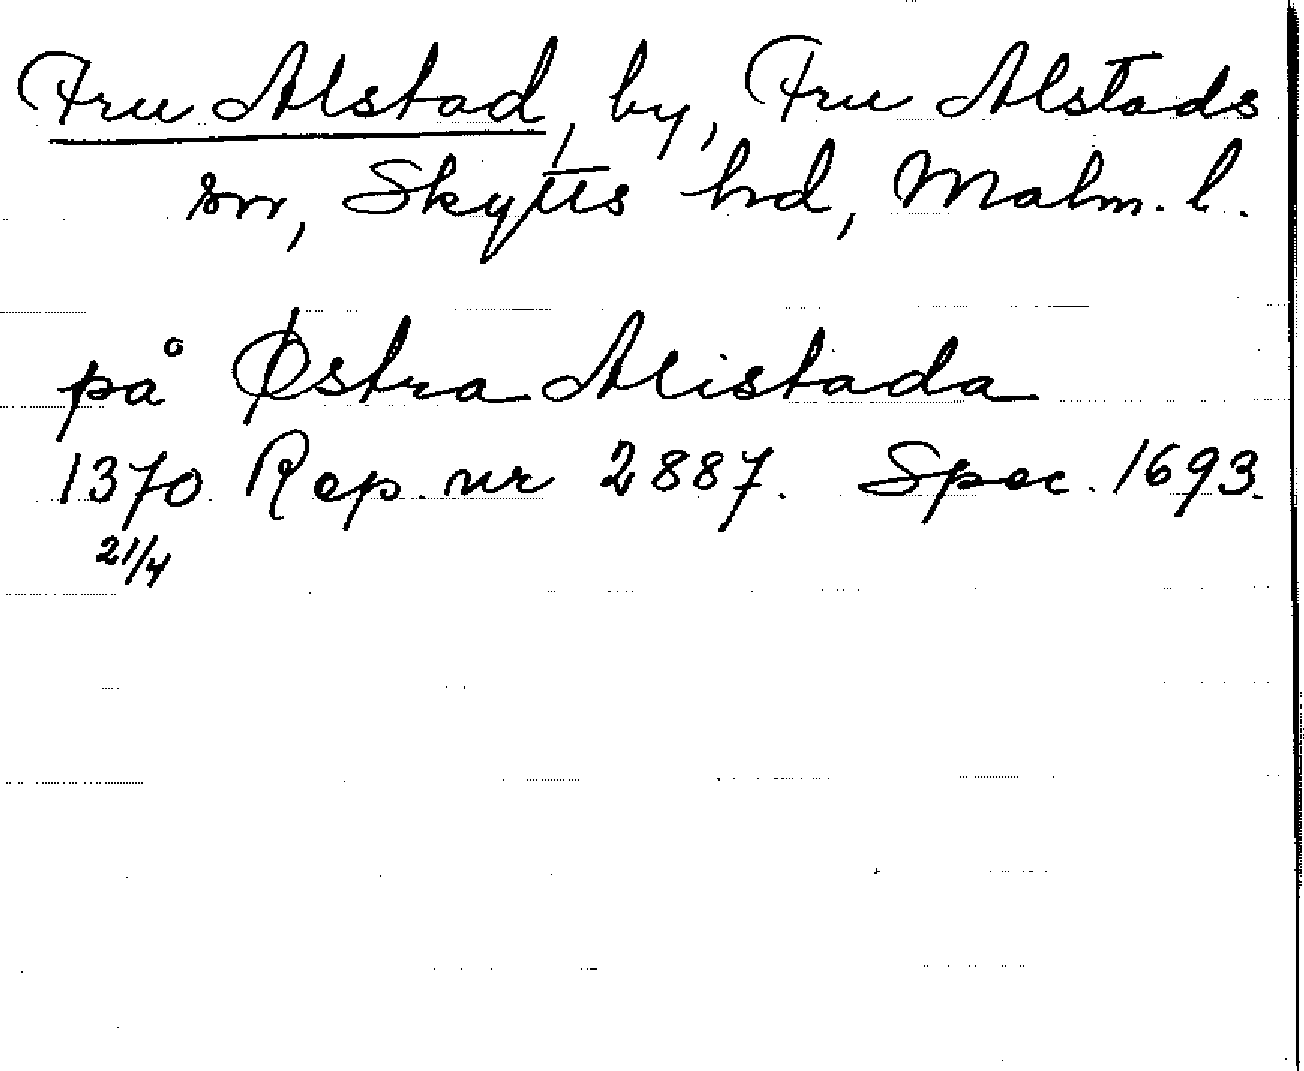 Fru Alstad, by, Fru Alstads
sn, Skytts hd, Malm. l.
på Østra Alistada
1370 Rep. nr 2887. Spec. 1693.
21/4